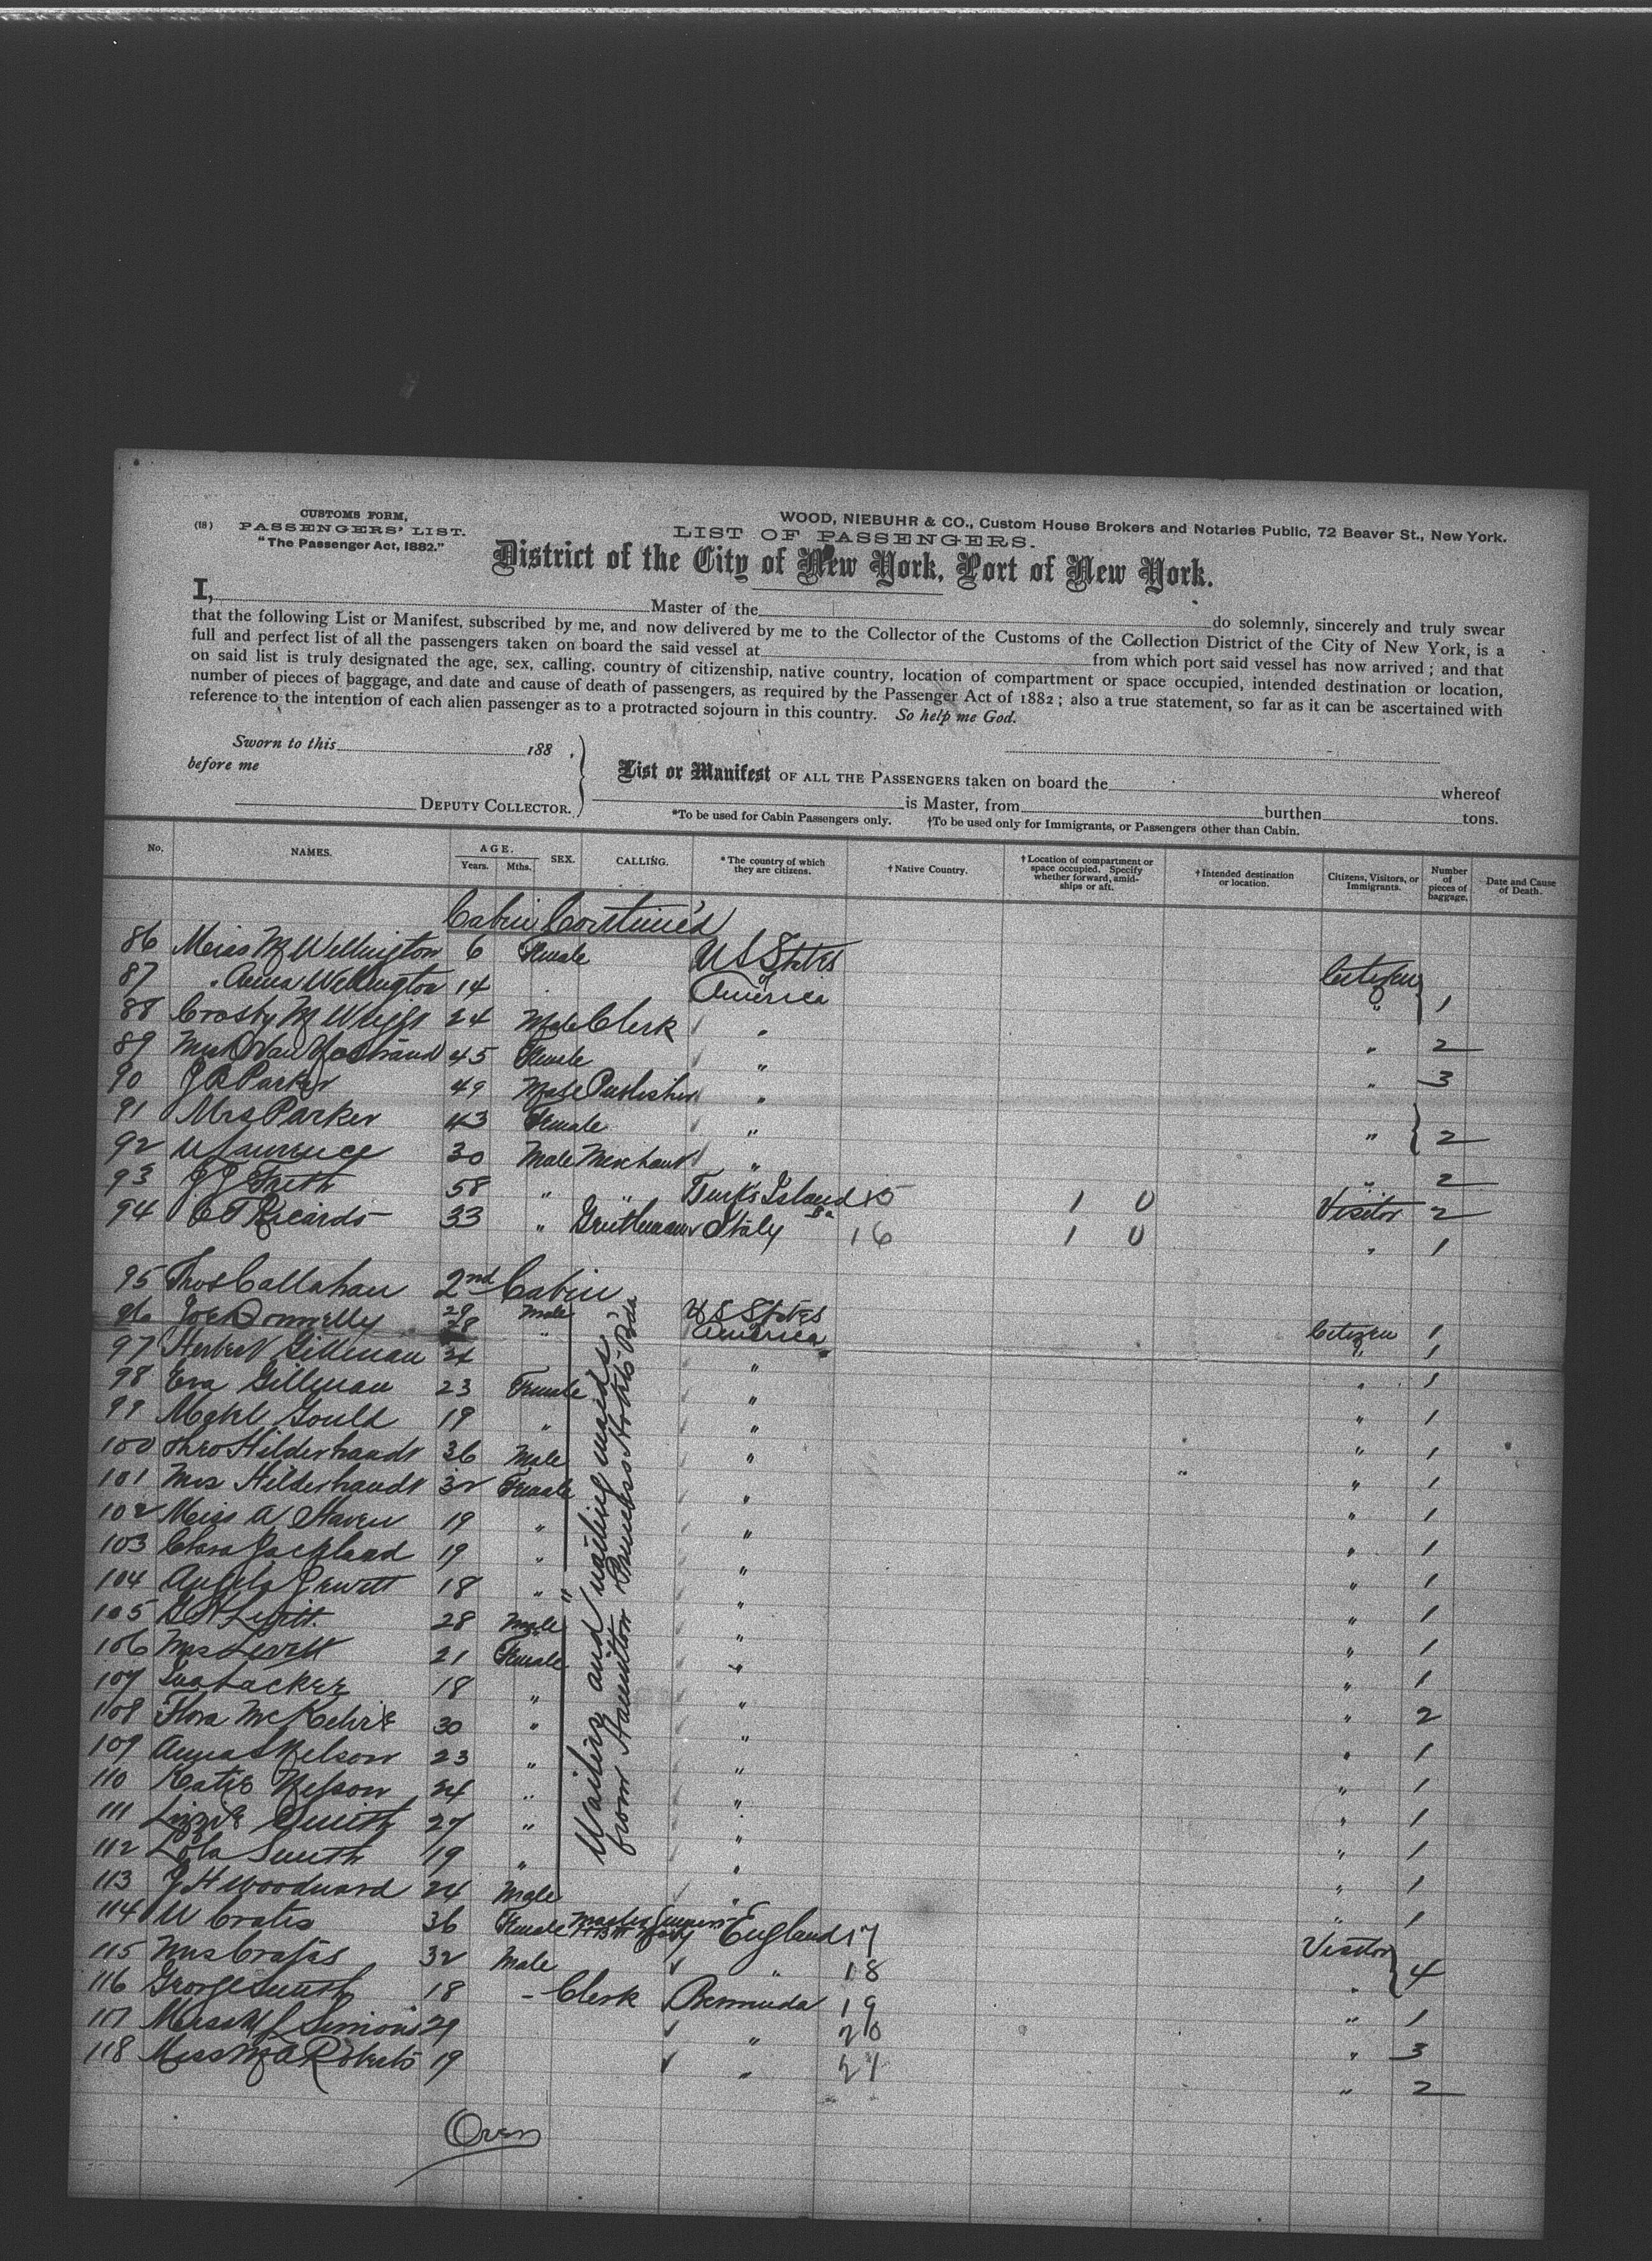 (18)
CUSTOMS FORM,
PASSENGERS' LIST.
"The Passenger Act, 1882."
WOOD, NIEBUHR & CO., Custom House Brokers and Notaries Public, 72 Beaver St., New York.
LIST OF PASSENGERS.
District of the City of New York, Port of New York.
I, Master of the do solemnly, sincerely and truly swear
that the following List or Manifest, subscribed by me, and now delivered by me to the Collector of the Customs of the Collection District of the City of New York, is a
full and perfect list of all the passengers taken on board the said vessel at from which port said vessel has now arrived; and that
on said list is truly designated the age, sex, calling, country of citizenship, native country, location of compartment or space occupied, intended destination or location,
number of pieces of baggage, and date and cause of death of passengers, as required by the Passenger Act of 1882; also a true statement, so far as it can be ascertained with
reference to the intention of each alien passenger as to a protracted sojourn in this country. So help me God.
Sworn to this 188 .
before me
DEPUTY COLLECTOR.
List or Manifest OF ALL THE PASSENGERS taken on board the whereof
is Master, from burthen tons.
*To be used for Cabin Passengers only. †To be used only for Immigrants, or Passengers other than Cabin.
No. NAMES. AGE. Years. Mths. SEX. CALLING. *The country of which they are citizens. †Native Country. †Location of compartment or space occupied. Specify whether forward, amidships or aft. †Intended destination or location. Citizens, Visitors, or Immigrants. Number of pieces of baggage. Date and Cause of Death.
Cabin Continued
86 Miss M Wellington 6 Female U S States Citizen
87 " Anna Wellington 14 " America " 1
88 Crosby M 24 Male Clerk " " 2
89 45 Female " " 3
90 J R Parker 49 Male Publisher "
91 Mrs Parker 43 Female " " 2
92 W Lawrence 30 Male Merchant " " 2
93 58 " " Turks Island 15 1 0 Visitor 2
94 C T Ricards 33 " Gentleman Italy 16 1 0 " 1
2nd Cabin
95 Thos Callahan 29 Male U S States Citizen 1
96 Joe Donnelly 28 " America " 1
97 Herbert Gillman 24 " " 1
98 Eva Gillman 23 Female " " 1
99 Mabel Gould 19 " " " 1
100 Theo Hilderbrandt 36 Male " " 1
101 Mrs Hilderbrandt 32 Female " " 1
102 Miss A Haven 19 " " " 1
103 Clara 19 " " " 1
104 Angela Jewett 18 " " " 1
105 28 Male " " 1
106 Mrs 21 Female " " 1
107 18 " " " 2
108 Flora 30 " " " 1
109 Anna Nelson 23 " " " 1
110 Katie Nelson 24 " " " 1
111 Lizzie Smith 27 " " " 1
112 Lola Smith 19 " " " 1
113 J H Woodward 24 Male " " 1
Waiters and waiting maids
from Hamilton & Princess Hotels B'da
114 W 36 Female England 17 Visitor
115 Mrs 32 Male " 18 " 4
116 George Smith 18 " Clerk Bermuda 19 " 1
117 Simons 29 " 20 " 3
118 Miss M A Roberts 19 " 21 " 2
Over